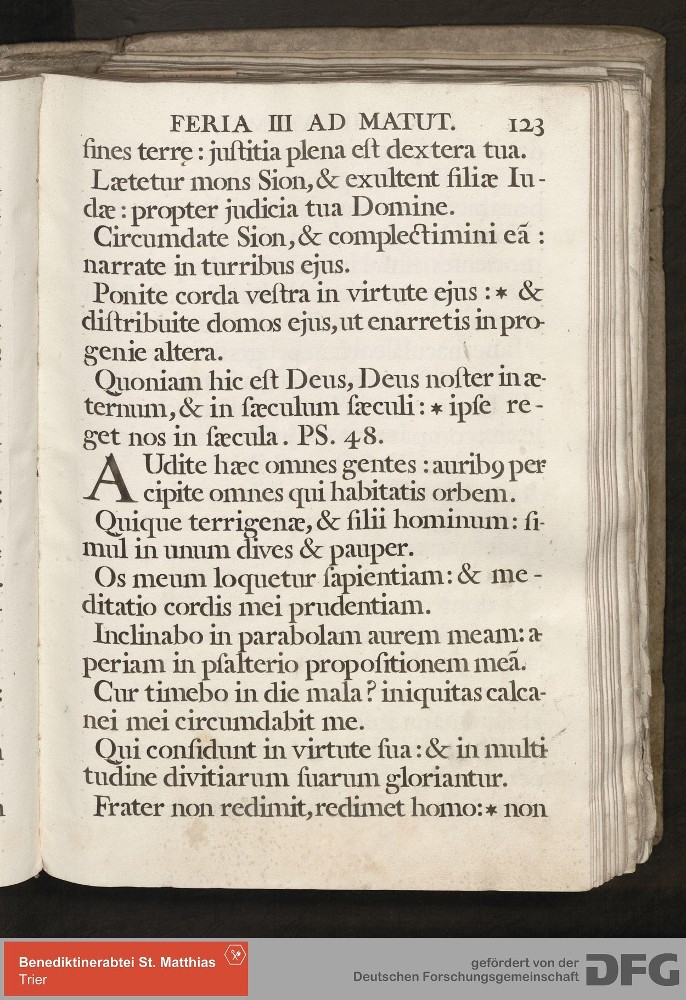 FERIA III AD MATUT. 123
fines terrę : juſtitia plena eſt dextera tua.
Lætetur mons Sion, & exultent filiæ Iu-
dæ : propter judicia tua Domine.
Circumdate Sion, & complectimini eã :
narrate in turribus ejus.
Ponite corda veſtra in virtute ejus : * &
diſtribuite domos ejus, ut enarretis in pro-
genie altera.
Quoniam hic eſt Deus, Deus noſter in æ-
ternum, & in ſæculum ſæculi : * ipſe re-
get nos in ſæcula. PS. 48.
AUdite hæc omnes gentes : auribꝯ per-
cipite omnes qui habitatis orbem.
Quique terrigenæ, & filii hominum : ſi-
mul in unum dives & pauper.
Os meum loquetur ſapientiam : & me-
ditatio cordis mei prudentiam.
Inclinabo in parabolam aurem meam : a-
periam in pſalterio propoſitionem meã.
Cur timebo in die mala ? iniquitas calca-
nei mei circumdabit me.
Qui confidunt in virtute ſua : & in multi-
tudine divitiarum ſuarum gloriantur.
Frater non redimit, redimet homo : * non
Benediktinerabtei St. Matthias
Trier
gefördert von der
Deutschen Forschungsgemeinschaft
DFG